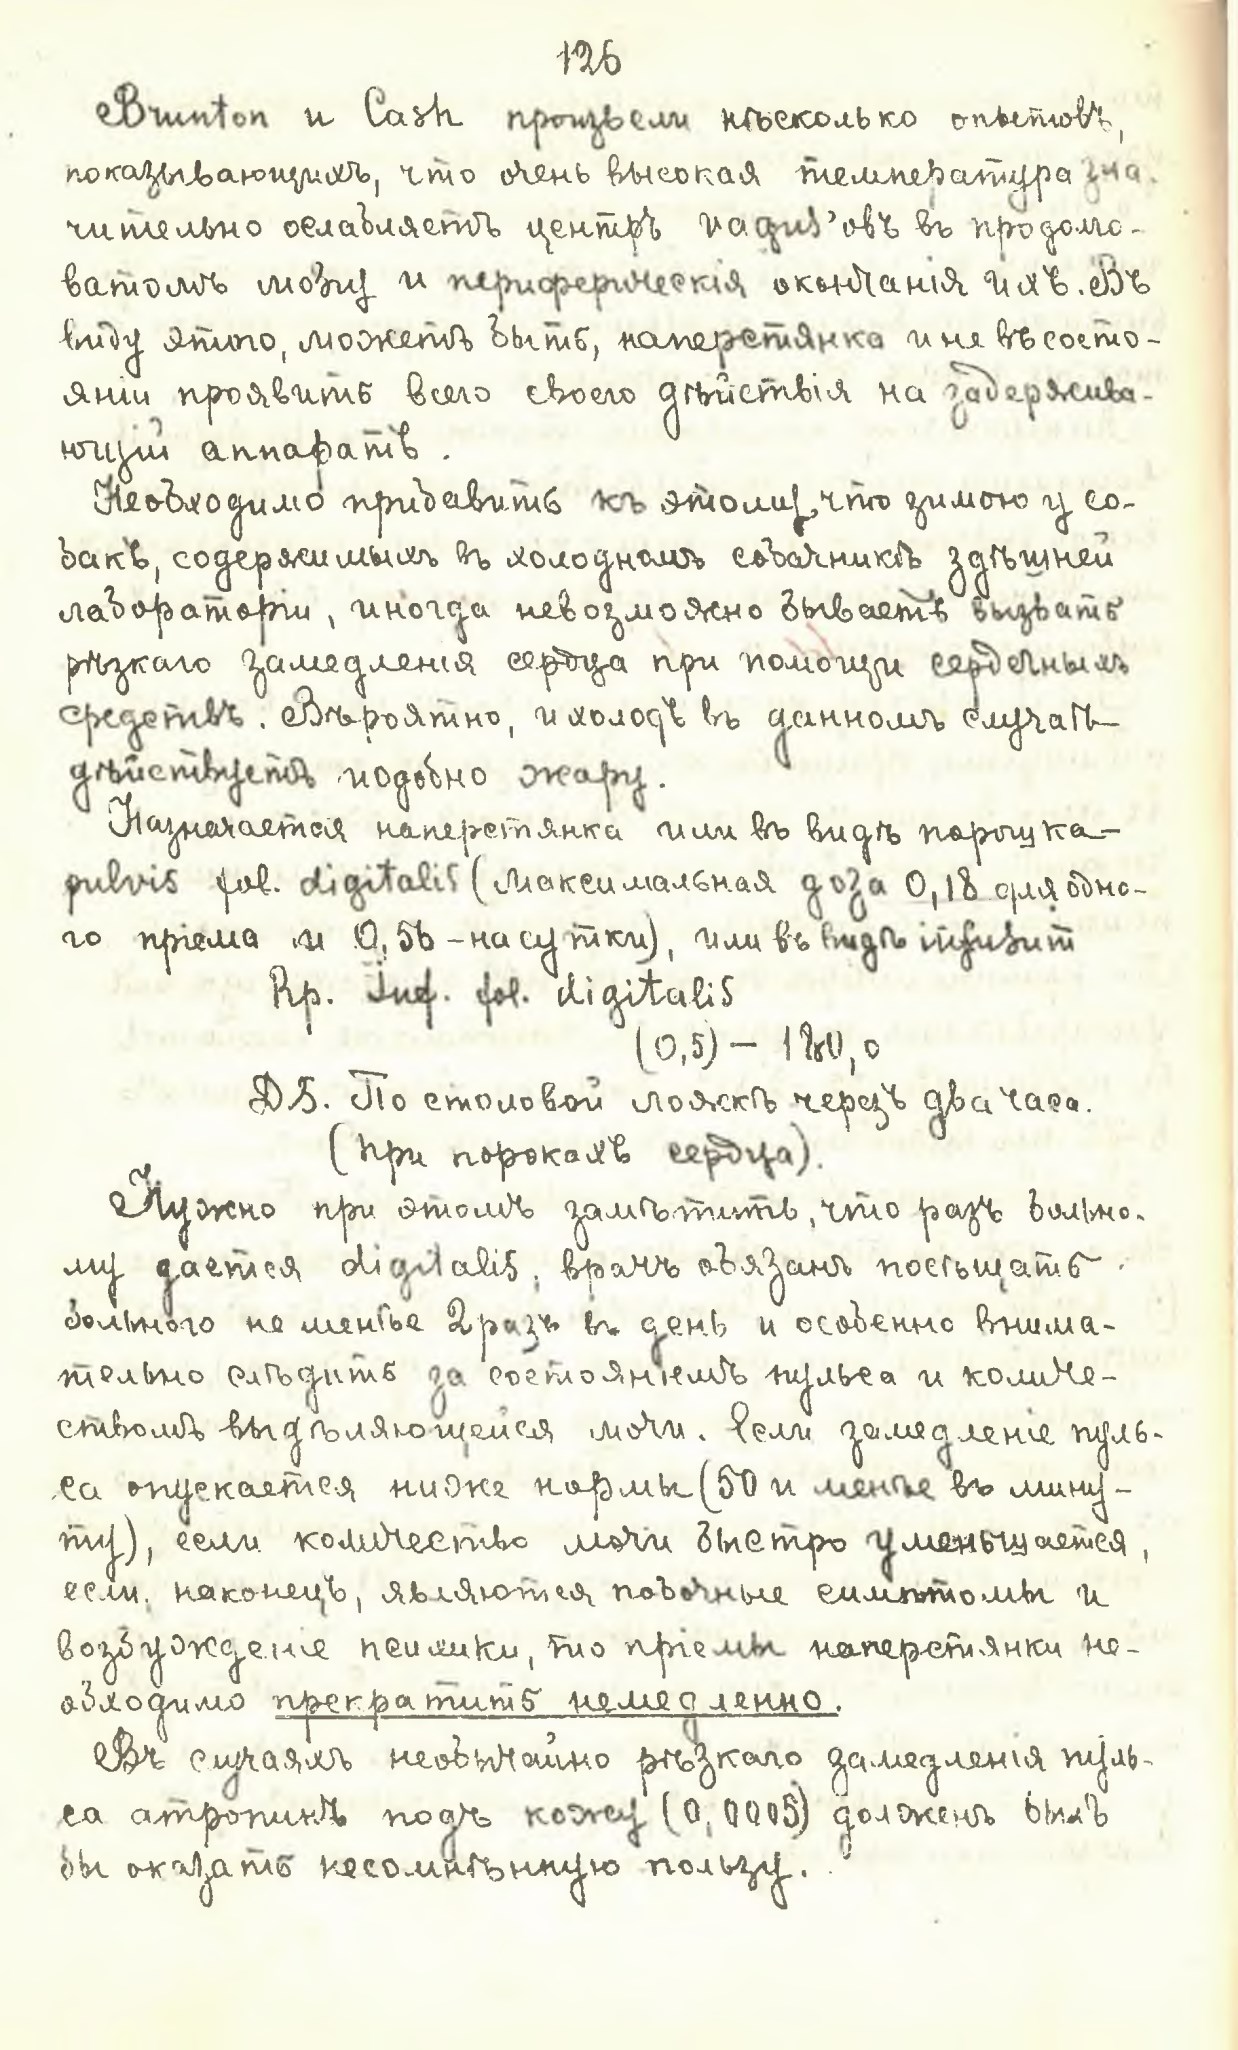 126
Brunton и Cash произвели нѣсколько опытовъ,
показывающихъ, что очень высокая температура зна-
чительно ослабляетъ центръ vagus'овъ въ продолго-
ватомъ мозгу и периферическія окончанія ихъ. Въ
виду этого, можетъ быть, наперстянка и не въ состо-
яніи проявить всего своего дѣйствія на задержива-
ющій аппаратъ.
Необходимо прибавить къ этому, что зимою у со-
бакъ, содержимыхъ въ холодномъ собачникѣ здѣшней
лабораторіи, иногда невозможно бываетъ вызвать
рѣзкаго замедленія сердца при помощи сердечныхъ
средствъ. Вѣроятно, и холодъ въ данномъ случаѣ
дѣйствуетъ подобно жару.
Назначается наперстянка или въ видѣ порошка—
pulvis fol. digitalis (максимальная доза 0,18 для одно-
го пріема и 0,56 – на сутки), или въ видѣ infusum
Rp. Inf. fol. digitalis
(0,5) – 180,0
DS. По столовой ложкѣ черезъ два часа.
(При порокахъ сердца).
Нужно при этомъ замѣтить, что разъ больно-
му дается digitalis, врачъ обязанъ посѣщать
больного не менѣе 2 разъ въ день и особенно внима-
тельно слѣдить за состояніемъ пульса и количе-
ствомъ выдѣляющейся мочи. Если замедленіе пуль-
са опускается ниже нормы (50 и менѣе въ мину-
ту), если количество мочи быстро уменьшается,
если, наконецъ, являются побочные симптомы и
возбужденіе психики, то пріемы наперстянки не-
обходимо прекратить немедленно.
Въ случаяхъ необычайно рѣзкаго замедленія пуль-
са атропинъ подъ кожу (0,0005) долженъ былъ
бы оказать несомнѣнную пользу.